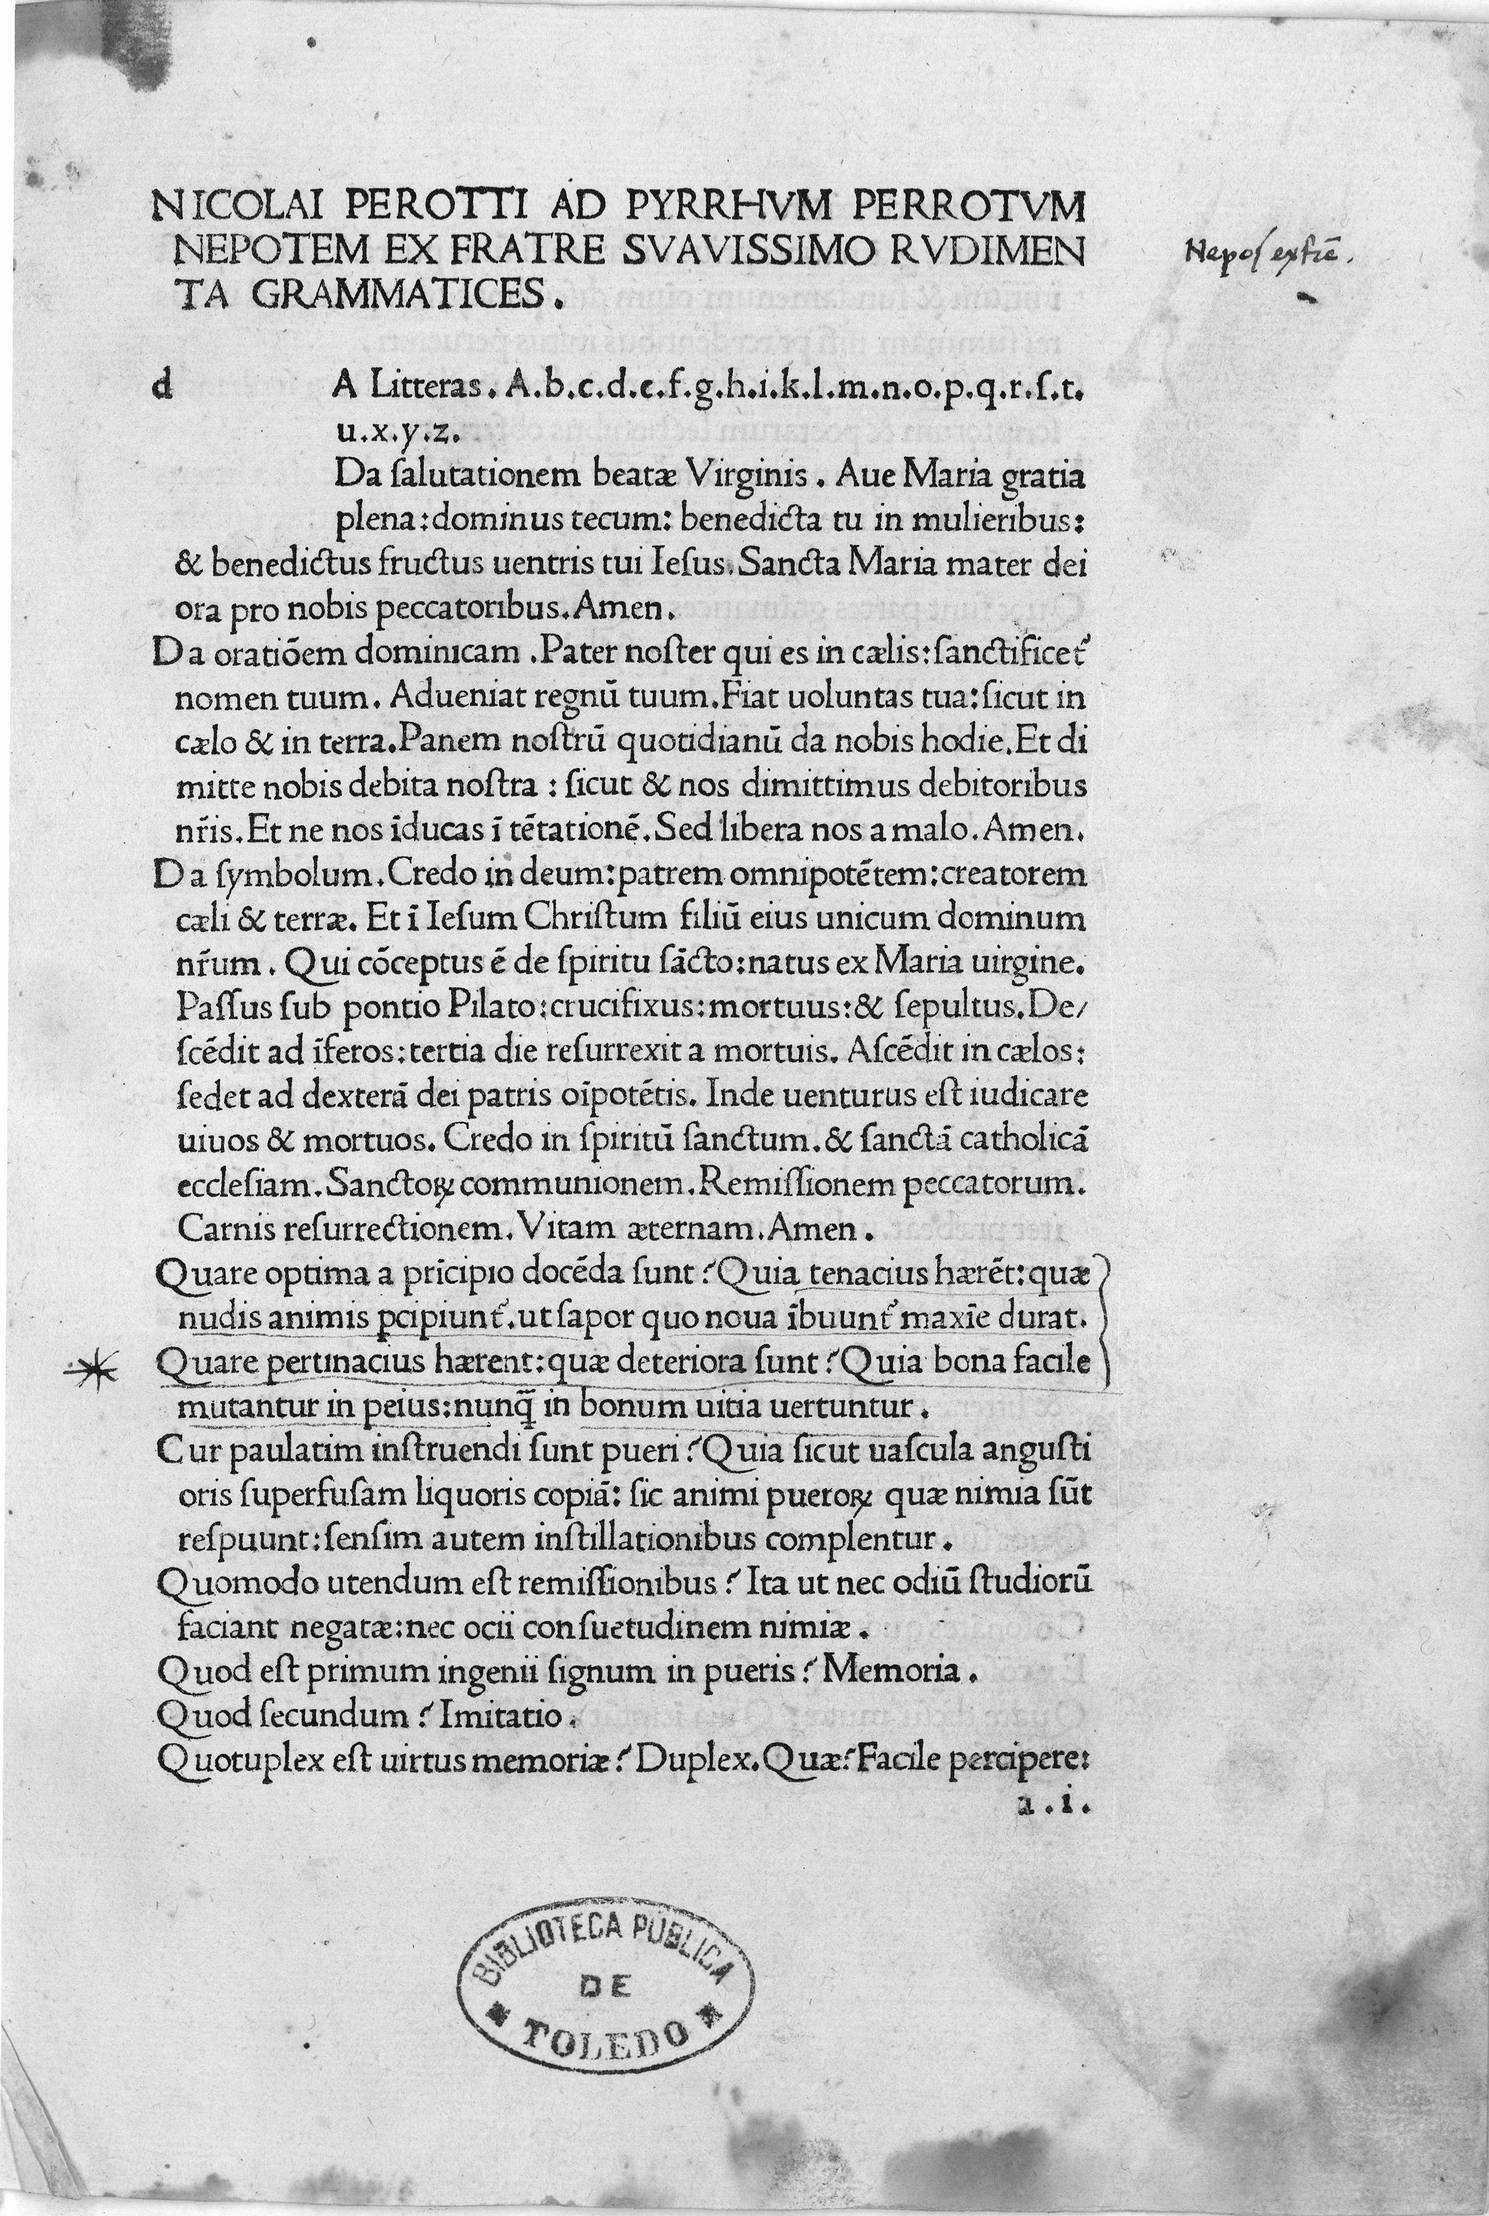 NICOLAI PEROTTI AD PYRRHVM PERROTVM
NEPOTEM EX FRATRE SVAVISSIMO RVDIMEN
TA GRAMMATICES.
Nepoſ ex fr̄e.
d A Litteras. A.b.c.d.e.f.g.h.i.k.l.m.n.o.p.q.r.ſ.t.
u.x.y.z.
Da ſalutationem beatæ Virginis. Aue Maria gratia
plena: dominus tecum: benedicta tu in mulieribus:
& benedictus fructus uentris tui Ieſus. Sancta Maria mater dei
ora pro nobis peccatoribus. Amen.
Da oratiōem dominicam. Pater noſter qui es in cælis: ſanctificet᷑
nomen tuum. Adueniat regnū tuum. Fiat uoluntas tua: ſicut in
cælo & in terra. Panem noſtrū quotidianū da nobis hodie. Et di
mitte nobis debita noſtra: ſicut & nos dimittimus debitoribus
nr̄is. Et ne nos īducas ī tētationē. Sed libera nos a malo. Amen.
Da ſymbolum. Credo in deum: patrem omnipotētem: creatorem
cæli & terræ. Et ī Ieſum Chriſtum filiū eius unicum dominum
nr̄um. Qui cōceptus ē de ſpiritu ſācto: natus ex Maria uirgine.
Paſſus ſub pontio Pilato: crucifixus: mortuus: & ſepultus. De/
ſcēdit ad īferos: tertia die reſurrexit a mortuis. Aſcēdit in cælos:
ſedet ad dexterā dei patris oīpotētis. Inde uenturus eſt iudicare
uiuos & mortuos. Credo in ſpiritū ſanctum. & ſanctā catholicā
eccleſiam. Sanctoꝝ communionem. Remiſſionem peccatorum.
Carnis reſurrectionem. Vitam æternam. Amen.
Quare optima a prīcipio docēda ſunt? Quia tenacius hærēt: quæ
nudis animis ꝑcipiunt᷑. ut ſapor quo noua ībuunt᷑ maxīe durat.
Quare pertinacius hærent: quæ deteriora ſunt? Quia bona facile
mutantur in peius: nunq̄ in bonum uitia uertuntur.
Cur paulatim inſtruendi ſunt pueri? Quia ſicut uaſcula anguſti
oris ſuperfuſam liquoris copiā: ſic animi pueroꝝ quæ nimia ſūt
reſpuunt: ſenſim autem inſtillationibus complentur.
Quomodo utendum eſt remiſſionibus? Ita ut nec odiū ſtudiorū
faciant negatæ: nec ocii conſuetudinem nimiæ.
Quod eſt primum ingenii ſignum in pueris? Memoria.
Quod ſecundum? Imitatio.
Quotuplex eſt uirtus memoriæ? Duplex. Quæ? Facile percipere:
a.i.
BIBLIOTECA PÚBLICA
DE
TOLEDO